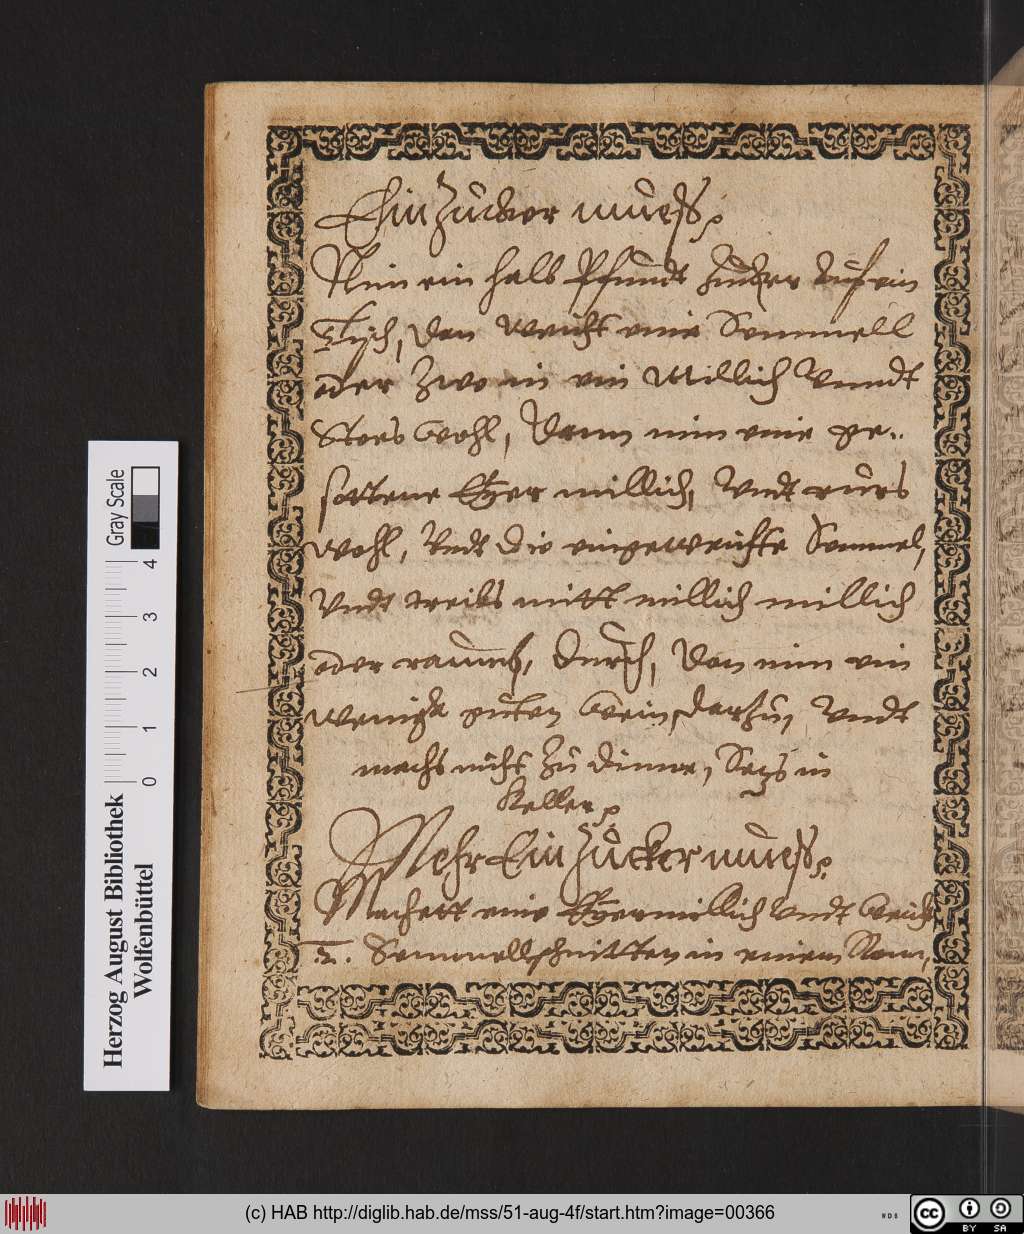 Ein Zucker muess
Nim ein halb Pfundt Zucker auf ein
Tisch, dan weicht eine Semmell
oder zwo in ein Millich Vnndt
Stoes wohl, dann nim eine ge=
sottene Eÿer millich, Vndt rüers
wohl, Vndt die eingeweichte Semmel,
Vndt treibs mitt millich millich
oder raumb, durch, dan nim ein
wenigk guten wein, darzu, Vndt
machs nicht zu dinne, Setzs in
Keller
Mehr Ein Zucker muess
Machett eine Eÿermillich Vndt weich
2. Semmellschnitten in einem
Gray Scale
4
3
2
1
0
Herzog August Bibliothek
Wolfenbüttel
(c) HAB http://diglib.hab.de/mss/51-aug-4f/start.htm?image=00366
WDB
cc
BY SA